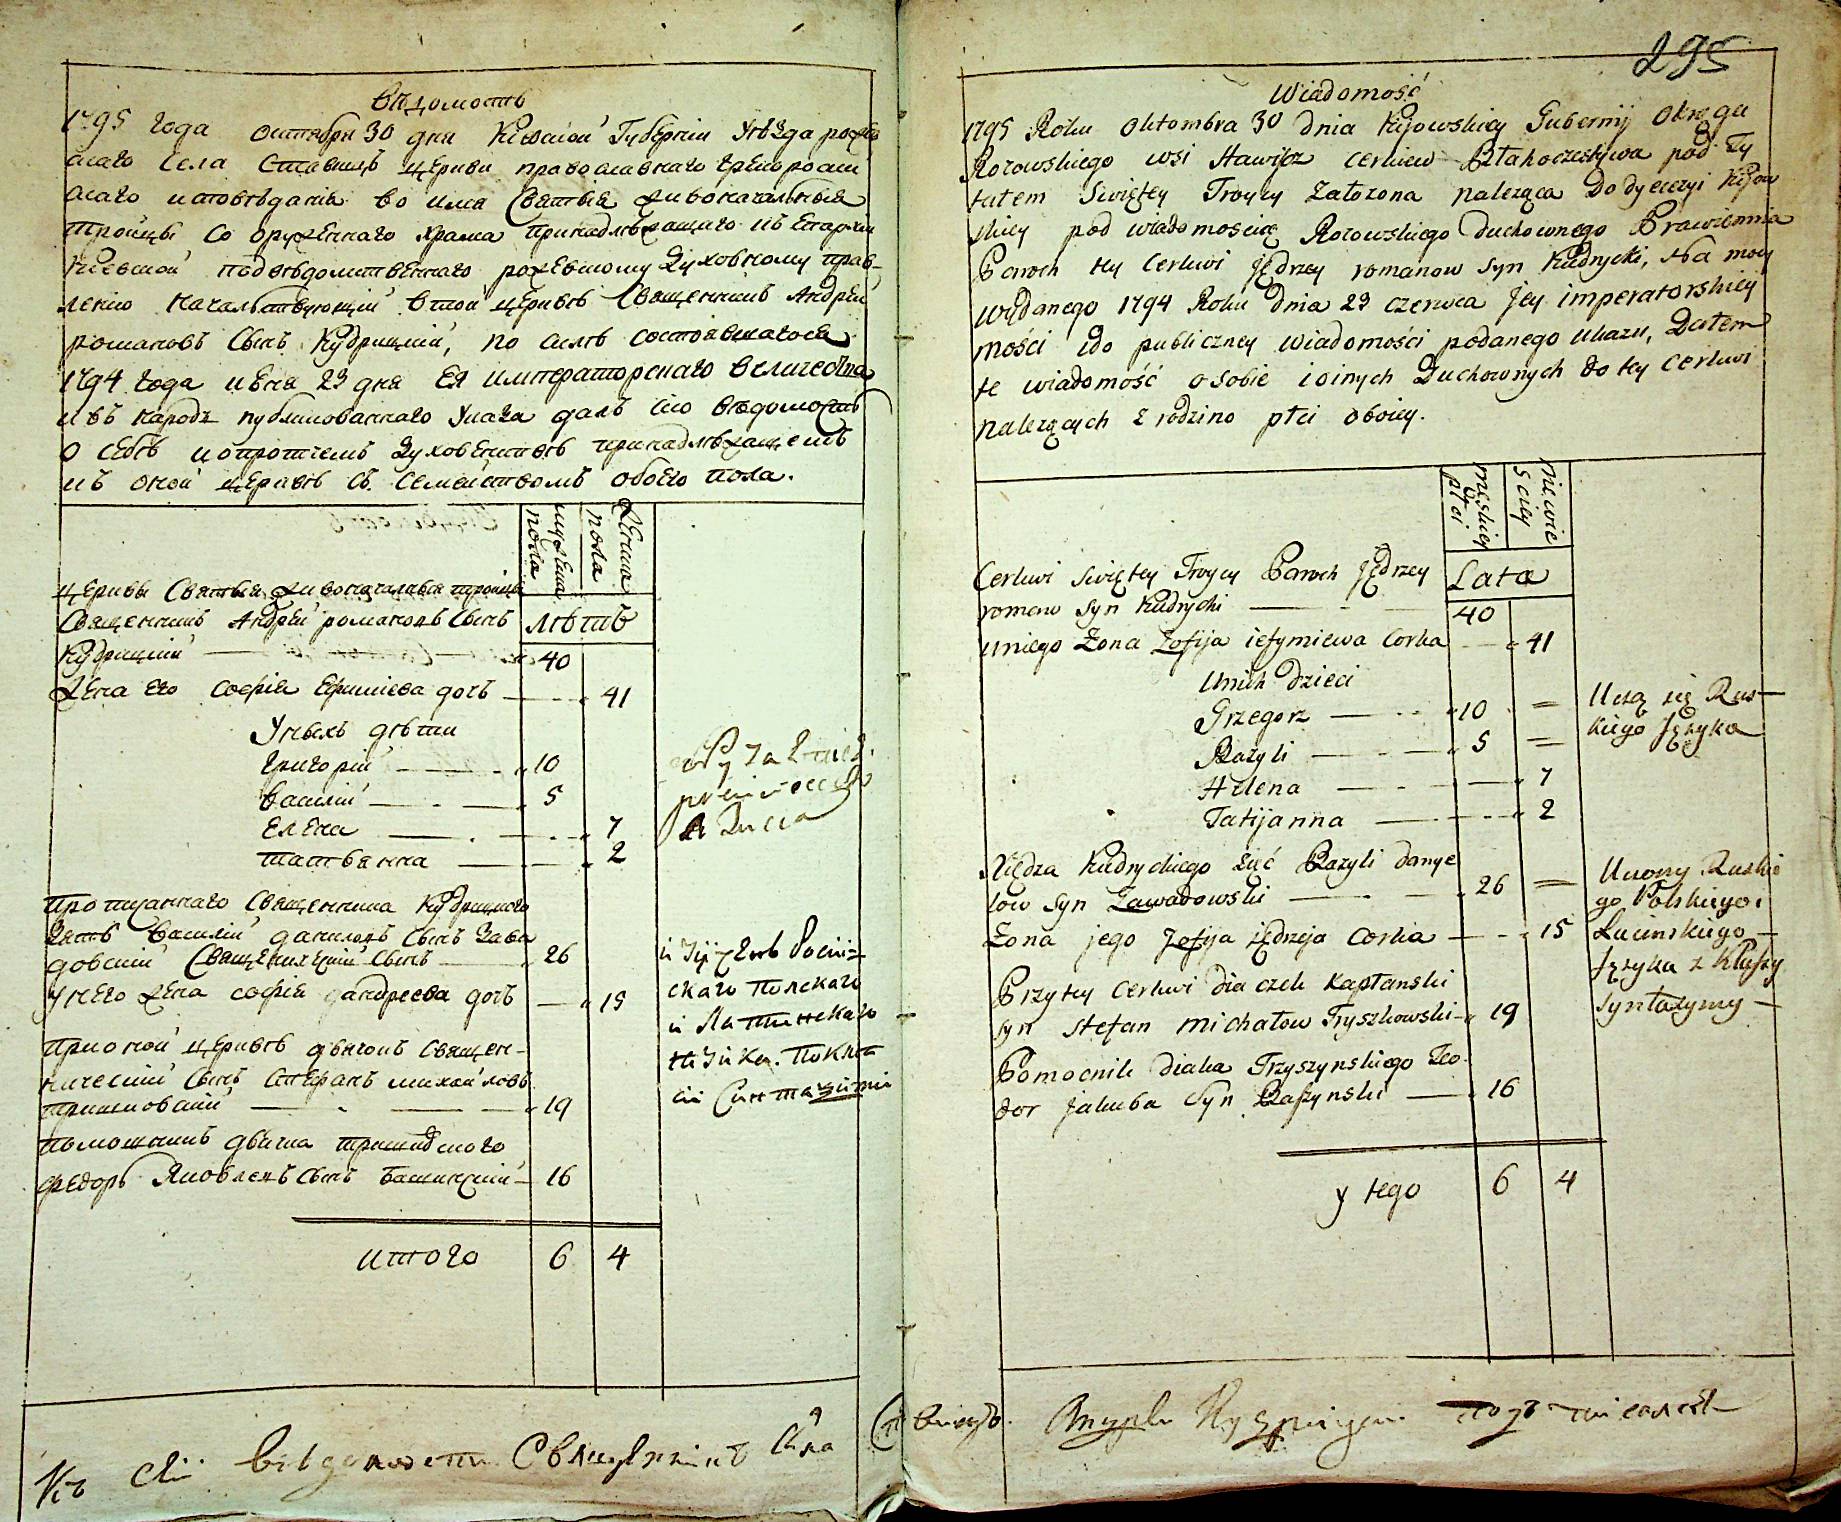 Вѣдомость
1795 года октября 30 дня Кіевской Губерніи Уѣзда рожев
скаго села Ставищъ церкви православнаго грекороссій
скаго исповѣданія во имя Святыя Живоначальныя
Троицы сооруженнаго храма принадлѣжащаго къ Епархіи
Кіевской подвѣдомственнаго рожевскому духовному прав-
лению начальствующій в той церквѣ Священникъ Андрей
романовъ сынъ Кудрицкій, по силѣ состоявшагося
1794 года июня 29 дня Ея императорскаго величества
и въ народъ публикованнаго указа далъ сію вѣдомость
о себѣ и о протчемъ духовенствѣ принадлѣжащемъ
къ оной церквѣ съ семействомъ обоего пола.
мужеска пола
женска пола
церквы Святыя живоначальныя троицы
Священникъ Андрей романовъ сынъ лѣтъ
Кудрицкій 40
Жена его софія Ефимієва дочь 41
У нихъ дѣти
Григорій 10
Василій 5
Елена 7
татьянна 2
прописаннаго священника Кудрицкого
зять Василій даниловъ сынъ Зава
довский священическій сынъ 26
У него жена софія андреева дочь 15
и изученъ Россій-
скаго Полскаго
и Латинскаго
язика. по клас
си Синтазими
При оной церквѣ дьячокъ Священ-
ническій сынъ стефанъ михайловъ
тришковскій 19
помощникъ дьячка
федоръ Яковлевъ сынъ Башинскій 16
итого 6 4
295
Wiadomość
1795 Roku Oktombra 30 dnia Kijowskiey Gubernij Okręgu
Rozowskiego wsi Stawiszcz cerkiew Błahoczestywa pod Ty
tułem Swiętey Troycy załozona naleząca do dyecezyi Kijow
skiey pod wiadomoscią Rozowskiego duchownego Prawlennia
Paroch tey Cerkwi Jędrzey romanow syn Kudrycki, Na mocy
wydanego 1794 Roku dnia 29 czerwca Jey imperatorskiey
mości i do publiczney wiadomości podanego Ukazu, Dałem
te wiadomość o sobie i o inych Duchownych do tey cerkwi
nalezących z rodzino płci oboiey.
męskiey płci
niewie sciey
Cerkwi Swiętey Troycy Paroch Jędrzey Lata
roman syn Kudrycki 40
u niego Zona Zofija iefymiewa Corka 41
U nich dzieci
Grzegorz 10 =
Bazyli 5 =
Uczą się Rus-
kiego Języka
Helena 7
Tatijanna 2
Xiędza Kudryckiego zięć Bazyli danye
low syn Zawadowski 26 =
Zona jego Zofija Jędrzeja Corka 15
Uczony Ruskie
go Polskiego.
Łacinskiego
Języka z Klassy
syntazymy
Przy tey cerkwi diaczek kapłanski
syn stefan michałow Tryszkowski 19
Pomocnik diaka Trzyszynskiego Teo-
dor Jakuba Syn Baszynski 16
y tego 6 4
Къ сей вѣдомости Священникъ
Андрей Кудрицкій подписался